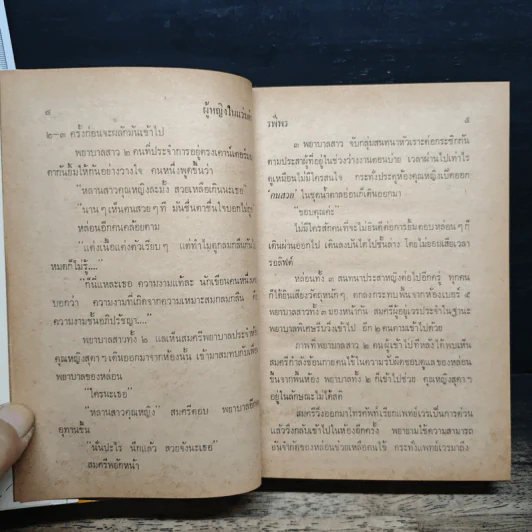 ๔
ผู้หญิงในแว่นดำ
๒-๓ ครั้งก่อนจะผลักมันเข้าไป
พยาบาลสาว ๒ คนที่ประจำการอยู่ตรงเคาน์เตอร์
ตากันยิ้มให้กันอย่างวางใจ คนหนึ่งพูดขึ้นว่า
“หลานสาวคุณหญิงละมั้ง สวยเหลือเกินนะเธอ”
“นานๆเห็นคนสวยๆที มันชื่นตาชื่นใจบอกไม่ถูก
หล่อนอีกคนคล้อยตาม
“แต่งเนื้อแต่งตัวเรียบๆ แต่ทำไมดูกลมกลืนกัน
หมดก็ไม่รู้....”
“ก็นี่แหละเธอ ความงามแท้ละ นักเขียนคนหนึ่ง
บอกว่า ความงามที่เกิดจากความเหมาะสมกลมกลืน
ความงามขั้นอภิปรัชญา....”
พยาบาลสาวทั้ง ๒ แลเห็นสมศรีพยาบาลประจำ
คุณหญิงสุดาฯเดินออกมาจากห้องนั้น เข้ามาสมทบกับ
พยาบาลของหล่อน
“ใครนะเธอ”
“หลานสาวคุณหญิง” สมศรีตอบ พยาบาล
อุทานขึ้น
“นั่นปะไร นึกแล้ว สวยจังนะเธอ”
สมศรีพยักหน้า
รพีพร
๕
๓ พยาบาลสาว จับกลุ่มสนทนาหัวเราะต่อกระซิกกัน
ตามประสาผู้ที่อยู่ในช่วงว่างงานตอนบ่าย เวลาผ่านไปเท่าไร
ดูเหมือนไม่มีใครสนใจ กระทั่งประตูห้องคุณหญิงเปิดออก
‘คนสวย’ ในชุดน้ำตาลอ่อนก็เดินออกมา
“ขอบคุณค่ะ”
ไม่มีใครสักคนที่จะไม่ยินดีต่อการยิ้มตอบ หล่อนๆก็
เดินผ่านออกไป เดินลงบันไดไปชั้นล่าง โดยไม่ยอมเสียเวลา
รอลิฟต์
หล่อนทั้ง ๓ สนทนาประสาหญิงต่อไปอีกครู่ ทุกคน
ก็ได้ยินเสียงวัตถุหนักๆ ตกลงกระทบพื้นจากห้องเบอร์ ๕
พยาบาลสาวทั้ง ๓ มองหน้ากัน สมศรีผู้อยู่เวรประจำในฐานะ
พยาบาลพิเศษรีบวิ่งเข้าไป อีก ๒ คนตามเข้าไปด้วย
ภาพที่พยาบาลสาว ๒ คนผู้เข้าไปทีหลังได้พบเห็น
สมศรีกำลังซ้อนกายคนไข้ในความรับผิดชอบดูแลของหล่อน
ขึ้นจากพื้นห้อง พยาบาลทั้ง ๒ ก็เข้าไปช่วย คุณหญิงสุดาฯ
อยู่ในลักษณะไม่ได้สติ
สมศรีวิ่งออกมาโทรศัพท์เรียกแพทย์เวรเป็นการด่วน
แล้ววิ่งกลับเข้าไปในห้องอีกครั้ง พยายามใช้ความสามารถ
อันจำกัดของหล่อนช่วยเหลือคนไข้ กระทั่งแพทย์เวรมาถึง